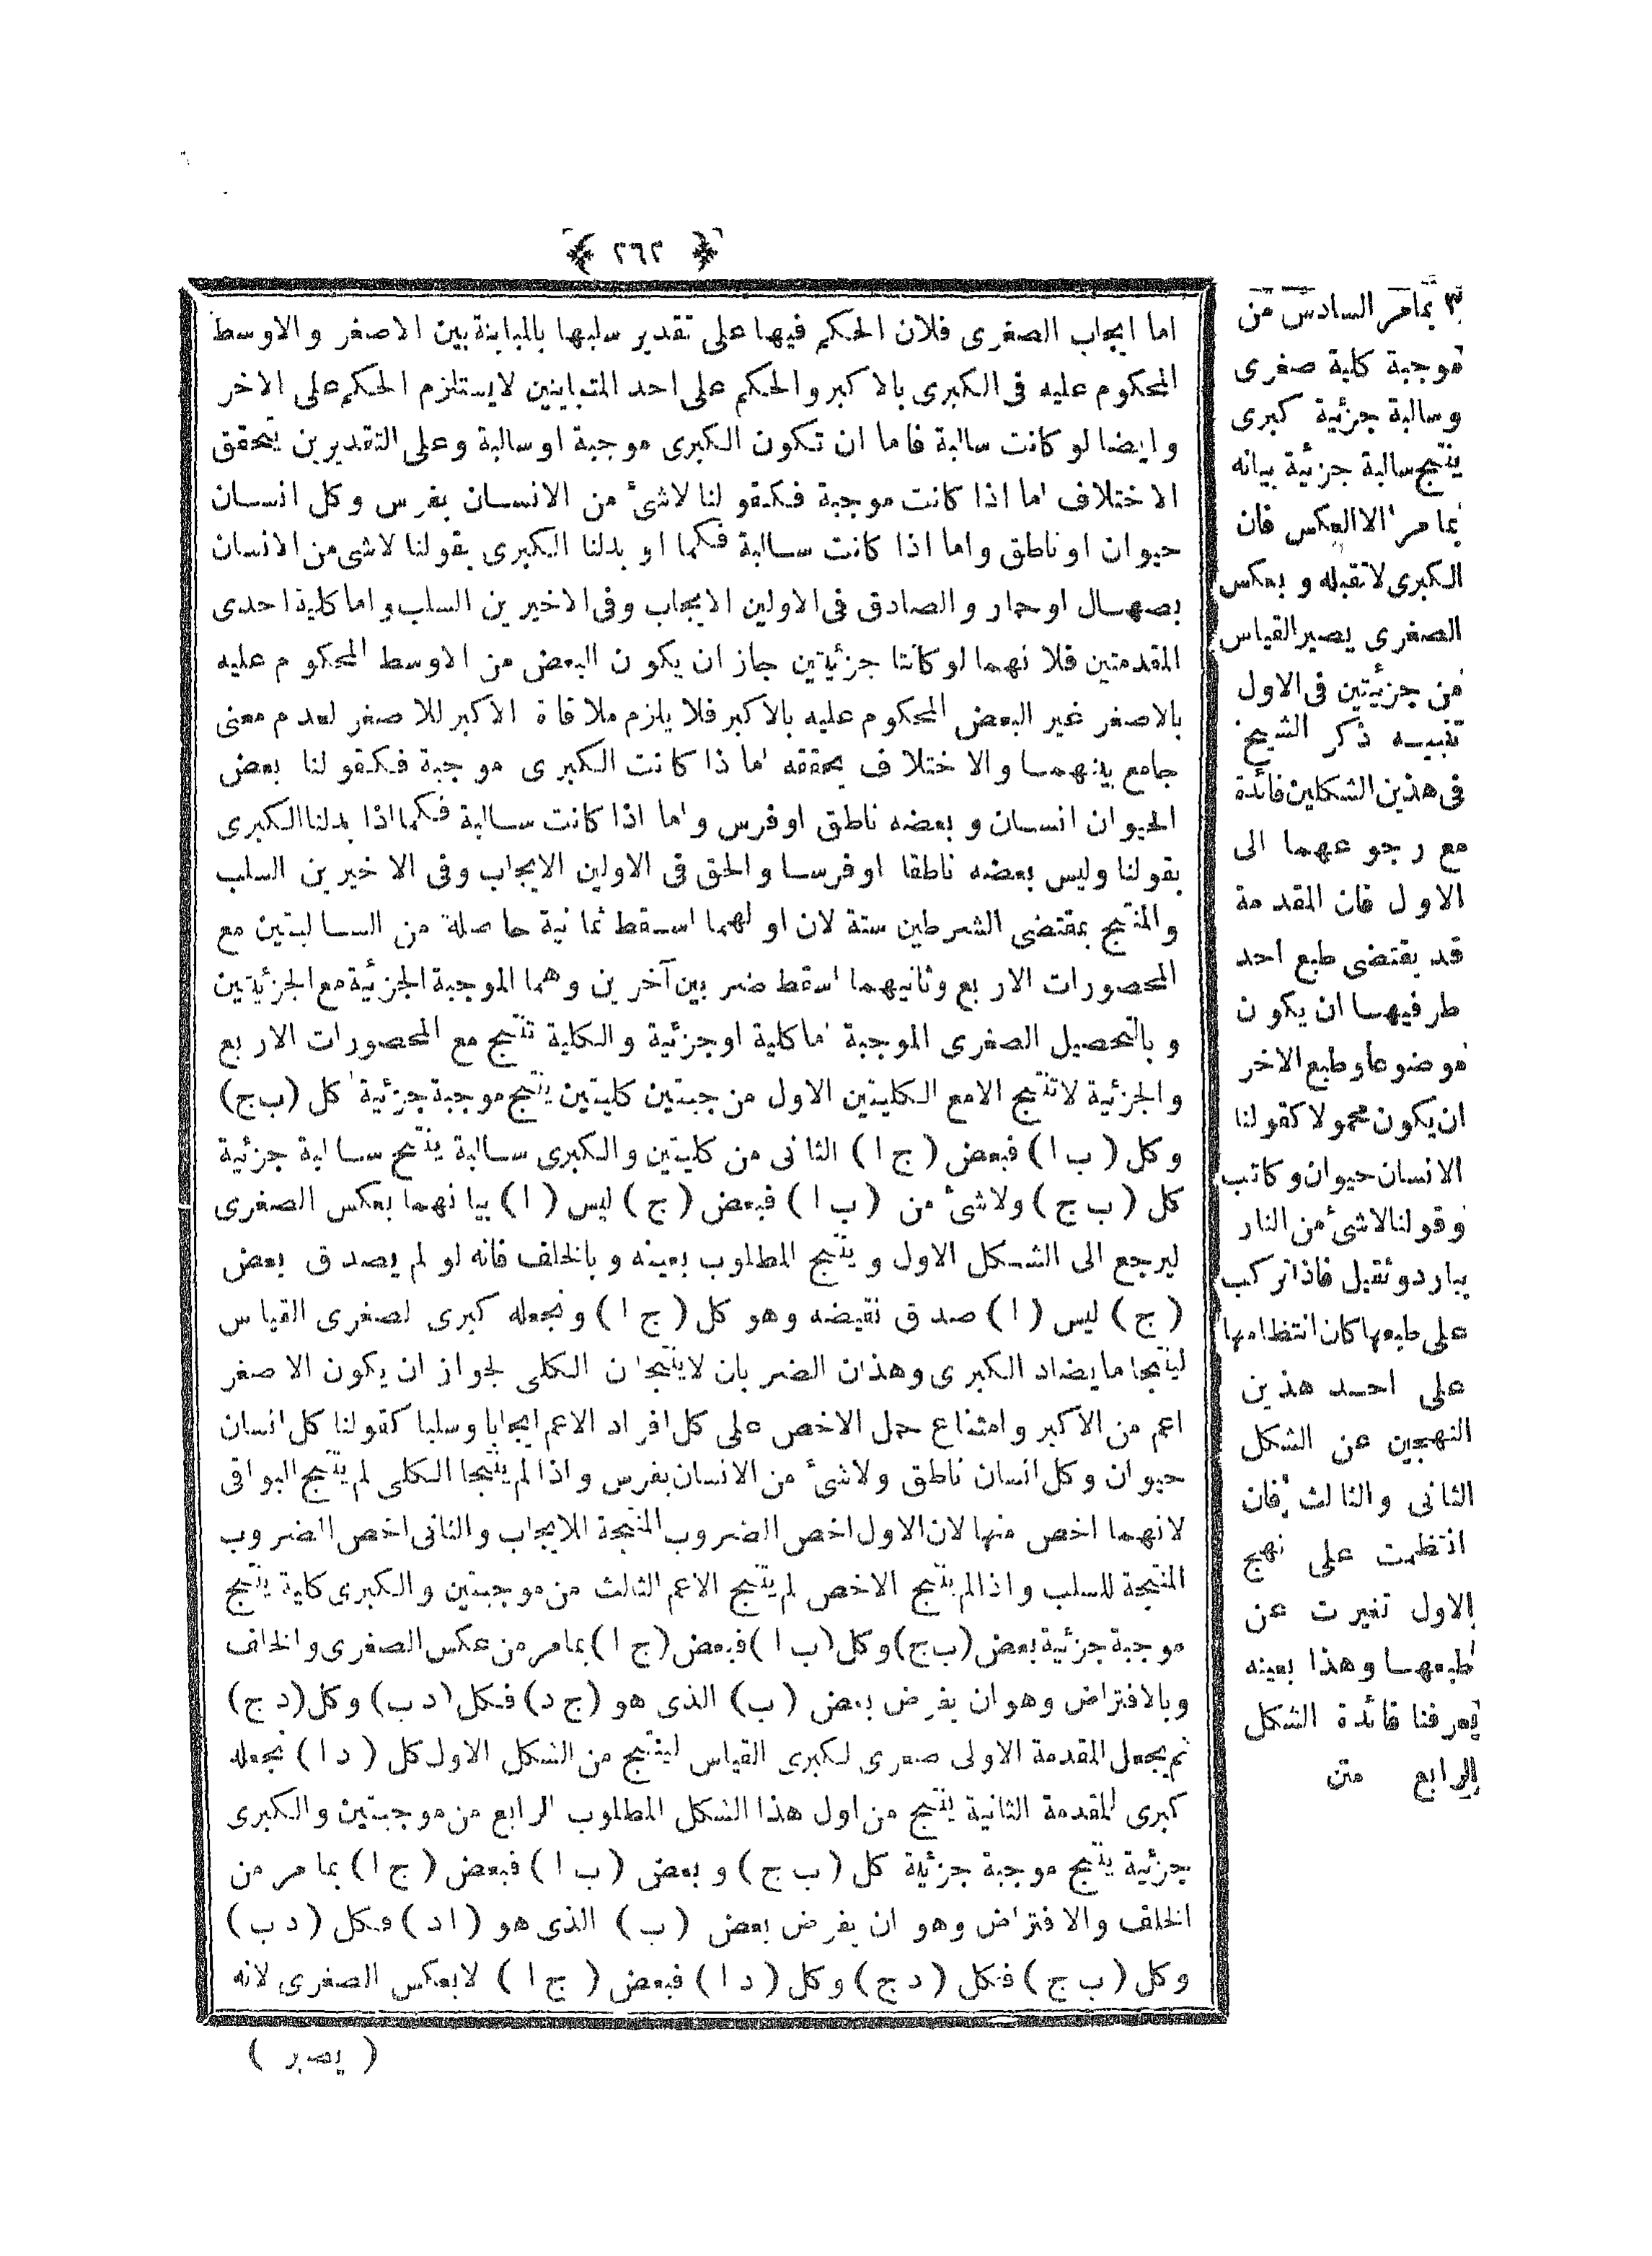 ﴿ ٢٦٢ ﴾
اما ايجاب الصغرى فلان الحكم فيها على تقدير سلبها بالمباينة بين الاصغر والاوسط
المحكوم عليه فى الكبرى بالاكبر والحكم على احد المتباينين لايستلزم الحكم على الاخر
وايضا لو كانت سالبة فاما ان تكون الكبرى موجبة او سالبة وعلى التقديرين يتحقق
الاختلاف اما اذا كانت موجبة فكقولنا لاشئ من الانسان بفرس وكل انسان
حيوان او ناطق واما اذا كانت سالبة فكما او بدلنا الكبرى بقولنا لاشئ من الانسان
بصهال او حمار والصادق فى الاولين الايجاب وفى الاخيرين السلب واما كلية احدى
المقدمتين فلانهما لو كانتا جزئيتين جاز ان يكون البعض من الاوسط المحكوم عليه
بالاصغر غير البعض المحكوم عليه بالاكبر فلا يلزم ملاقاة الاكبر للاصغر لعدم معنى
جامع بينهما والاختلاف يحققه اما ذا كانت الكبرى موجبة فكقولنا بعض
الحيوان انسان وبعضه ناطق او فرس واما اذا كانت سالبة فكما اذا بدلنا الكبرى
بقولنا وليس بعضه ناطقا او فرسا والحق فى الاولين الايجاب وفى الاخيرين السلب
والمنتج بمقتضى الشرطين ستة لان اولهما اسقط ثمانية حاصلة من السالبتين مع
المحصورات الاربع وثانيهما اسقط ضربين آخرين وهما الموجبة الجزئية مع الجزئيتين
وبالتحصيل الصغرى الموجبة اما كلية او جزئية والكلية تنتج مع المحصورات الاربع
والجزئية لاتنتج الامع الكليتين الاول من جبتين كليتين ينتج موجبة جزئية كل (ب ج)
وكل (ب ا) فبعض (ج ا) الثانى من كليتين والكبرى سالبة ينتج سالبة جزئية
كل (ب ج) ولاشئ من (ب ا) فبعض (ج) ليس (ا) بيانهما بعكس الصغرى
ليرجع الى الشكل الاول وينتج المطلوب بعينه وبالخلف فانه لو لم يصدق بعض
(ج) ليس (ا) صدق نقيضه وهو كل (ج ا) ونجعله كبرى لصغرى القياس
لينتجا ما يضاد الكبرى وهذان الضربان لاينتجان الكلى لجواز ان يكون الاصغر
اعم من الاكبر وامتناع حمل الاخص على كل افراد الاعم ايجابا وسلبا كقولنا كل انسان
حيوان وكل انسان ناطق ولاشئ من الانسان بفرس واذا لم ينتجا الكلى لم ينتج البواقى
لانهما اخص منها لان الاول اخص الضروب المنتجة للايجاب والثانى اخص الضروب
المنتجة للسلب واذا لم ينتج الاخص لم ينتج الاعم الثالث من موجبتين والكبرى كلية ينتج
موجبة جزئية بعض (ب ج) وكل (ب ا) فبعض (ج ا) بمامر من عكس الصغرى والخلف
وبالافتراض وهو ان يفرض بعض (ب) الذى هو (ج د) فكل (د ب) وكل (د ج)
ثم يجعل المقدمة الاولى صغرى لكبرى القياس لينتج من الشكل الاول كل (د ا) نجعله
كبرى للمقدمة الثانية ينتج من اول هذا الشكل المطلوب الرابع من موجبتين والكبرى
جزئية ينتج موجبة جزئية كل (ب ج) وبعض (ب ا) فبعض (ج ا) بمامر من
الخلف والافتراض وهو ان يفرض بعض (ب) الذى هو (ا د) فكل (د ب)
وكل (ب ج) فكل (د ج) وكل (د ا) فبعض (ج ا) لابعكس الصغرى لانه
(يصير)
٣ بمامر السادس من
موجبة كلية صغرى
وسالبة جزئية كبرى
ينتج سالبة جزئية بيانه
بمامر الا العكس فان
الكبرى لاتقبله وبعكس
الصغرى يصير القياس
من جزئيتين فى الاول
تنبيه ذكر الشيخ
فى هذين الشكلين فائدة
مع رجوعهما الى
الاول فان المقدمة
قد يقتضى طبع احد
طرفيها ان يكون
موضوعا وطبع الاخر
ان يكون محمولا كقولنا
الانسان حيوان وكاتب
وقولنا لاشئ من النار
ببارد وثقيل فاذا تركب
على طبعها كان انتظامها
على احد هذين
النهجين عن الشكل
الثانى والثالث فان
انتظمت على نهج
الاول تغيرت عن
طبعها وهذا بعينه
يعرفنا فائدة الشكل
الرابع متن